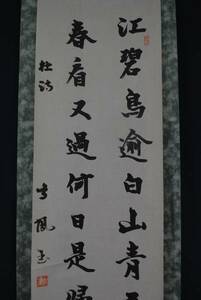 江碧鳥逾白山青
春看又過何日是歸
杜詩